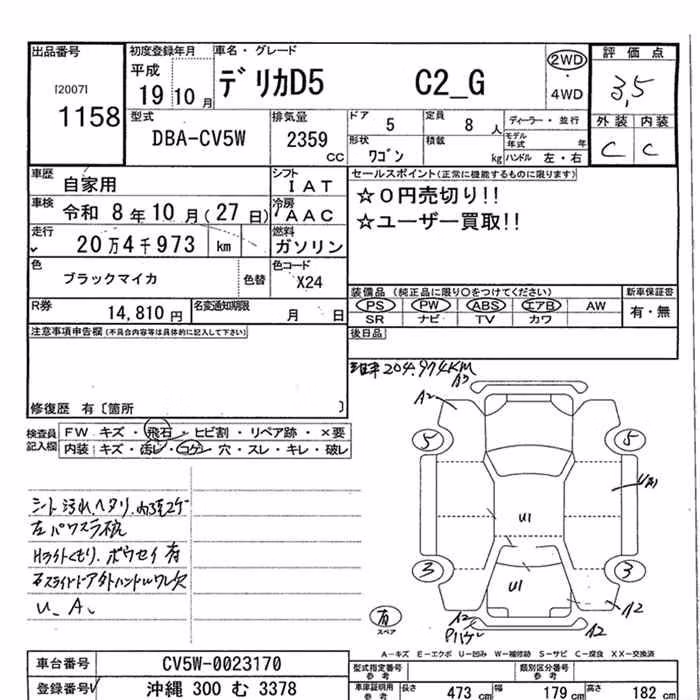 出品番号
[2007]
1158
初度登録年月
平成
19 10 月
車名・グレード
デリカD5 C2_G
2WD
・
4WD
評価点
3,5
外装 内装
C C
型式
DBA-CV5W
排気量
2359
CC
ドア
5
定員
8 人
形状
ワゴン
積載
kg
ディーラー・並行
モデル年式 年
ハンドル 左・右
車歴
自家用
シフト
IAT
車検
令和 8 年 10 月(27 日)
冷房
AAC
走行
20万4千973 km
燃料
ガソリン
色
ブラックマイカ
色替
色コード
X24
セールスポイント(正常に機能するものに限ります)
☆0円売切り!!
☆ユーザー買取!!
装備品(純正品に限り〇をつけてください)
PS PW ABS エアB AW
SR ナビ TV カワ
新車保証書
有・無
R券
14,810 円
名変通知期限
月 日
後日品
注意事項申告欄(不具合内容等は具体的に記入して下さい)
修復歴 有〔箇所 〕
204,974KM
検査員
記入欄
FW キズ・飛石・ヒビ割・リペア跡・×要
内装 キズ・汚レ・コゲ・穴・スレ・キレ・破レ
シート汚れ、ヘタリ、内張コゲ
左パワスラ
Hライトくもり、ボウセイ有
右スライドドア外ハンドルワレ欠
U、A、
A3
A2
5
5
U1
U1
3
3
A2
A2
A2
有
スペア
A－キズ E－エクボ U－凹み W－補修跡 S－サビ C－腐食 XX－交換済
車台番号
CV5W-0023170
登録番号
沖縄 300 む 3378
型式指定番号
参考
類別区分番号
参考
車庫証明用
参考
長さ
473 cm
幅
179 cm
高さ
182 cm